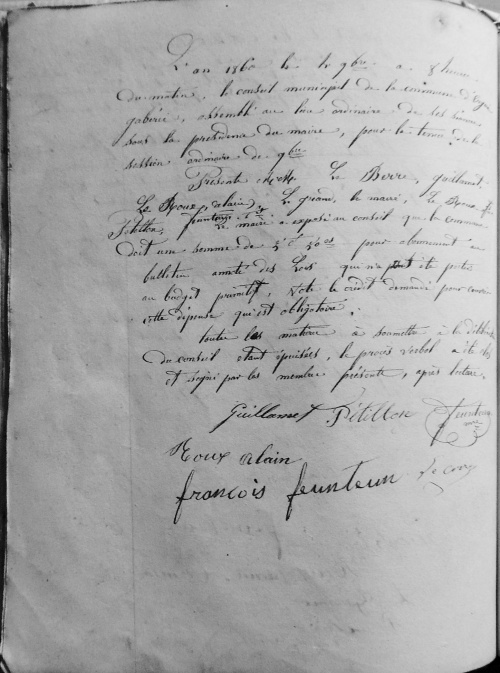 L'an 1860 le 9bre a 8 heures
du matin, le conseil municipal de la commune d'Ergué
gabéric, assemblé au lieu ordinaire de ses
sous la présidence du maire, pour la tenue de la
session ordinaire de 9bre
Présents Le Berre, guillamet
Le Roux alain, Le grand, le maire, Le Roux
Pétillon, feunteun Le maire a exposé au conseil que la commune
doit une somme de pour abonnement au
bulletin annoté des Lois qui n'a pas été portée
au budget primitif, vote le crédit demandé pour couvrir
cette dépense qui est obligatoire.
toutes les matière à soumettre à la
du conseil étant épuisées, le procès verbal a été
et signé par les membre présents, après lecture.
Guillamet Pétillon feunteun
Roux alain
françois feunteun